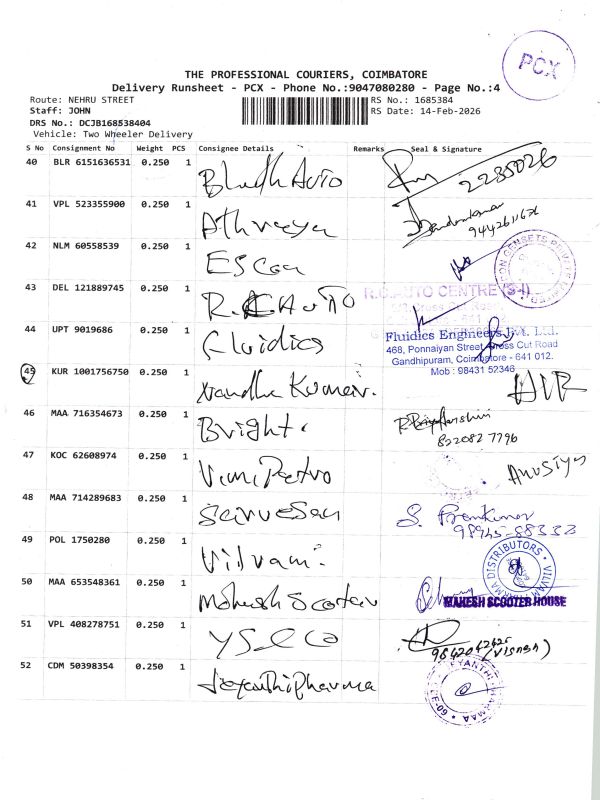 PCX
THE PROFESSIONAL COURIERS, COIMBATORE
Delivery Runsheet - PCX - Phone No.:9047080280 - Page No.:4
Route: NEHRU STREET
RS No.: 1685384
Staff: JOHN
RS Date: 14-Feb-2026
DRS No.: DCJB168538404
Vehicle: Two Wheeler Delivery
S No Consignment No Weight PCS Consignee Details Remarks Seal & Signature
40 BLR 6151636531 0.250 1 Auto 2285026
41 VPL 523355900 0.250 1 Athreya 9442611676
42 NLM 60558539 0.250 1
43 DEL 121889745 0.250 1 Auto
R.C. AUTO CENTRE (S-I)
44 UPT 9019686 0.250 1 Fluidics
Fluidics Engineers Pvt. Ltd.
468, Ponnaiyan Street, Cross Cut Road
Gandhipuram, Coimbatore - 641 012.
Mob : 98431 52346
45 KUR 1001756750 0.250 1 Nandha Kumar.
46 MAA 716354673 0.250 1 Bright. R. Priyadharshini
822082 7796
47 KOC 62608974 0.250 1 Anusiya
48 MAA 714289683 0.250 1 Sarvesan S. Premkumar
98945-88333
49 POL 1750280 0.250 1 Vilvam.
DISTRIBUTORS
50 MAA 653548361 0.250 1 Mahesh Scooter
MAHESH SCOOTER HOUSE
51 VPL 408278751 0.250 1
52 CDM 50398354 0.250 1 Jeyanthi Pharma